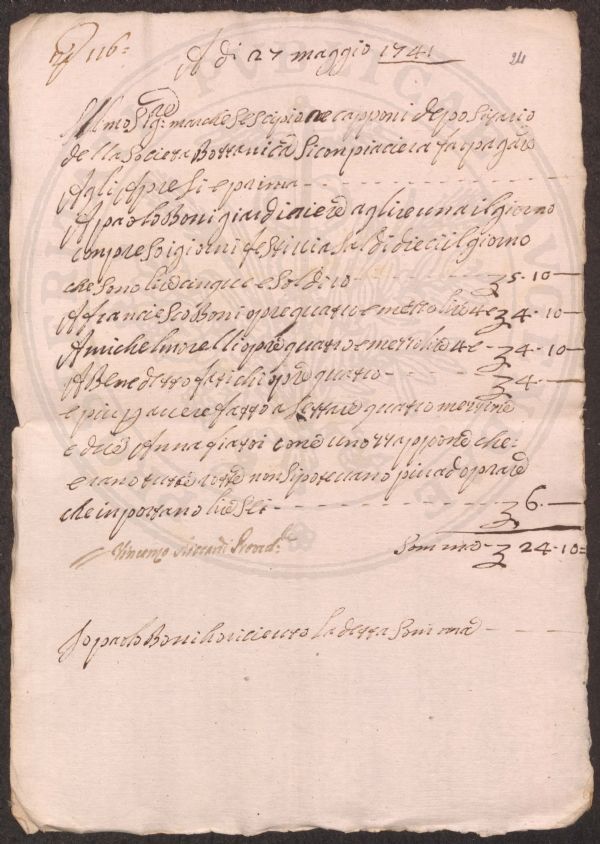 116
A di 27 maggio 1741
24
Illmo Sigre marchese Scipione capponi depositario
della Societa Bottanica Si conpiaciera far pagare
Agli Apresi e prima
A paolo Boni giardiniere a lire una il giorno
conpreso i giorni festivi a Soldi dieci il giorno
che sono lire cinque e Soldi 10 5 · 10
A franciesco Boni opre quatro e mezzo lire 4 e 4 · 10
A michel morelli opre quatro e mezzo lire 4 e 4 · 10
A Benedetto fatichi opre quatro 4 ·
e piu avere fatto a Settare quatro
e due Annafiatoi con uno zappone che
erano tutte rotte non Si potevano piu adoprare
che inportano lire Sei 6 ·
Somma 24 · 10
Io paolo Boni ho ricieuto la detta Somma